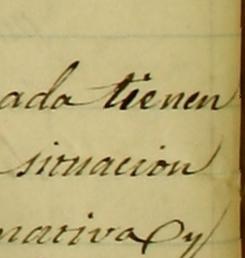 ada tienen
situacion
nativa y